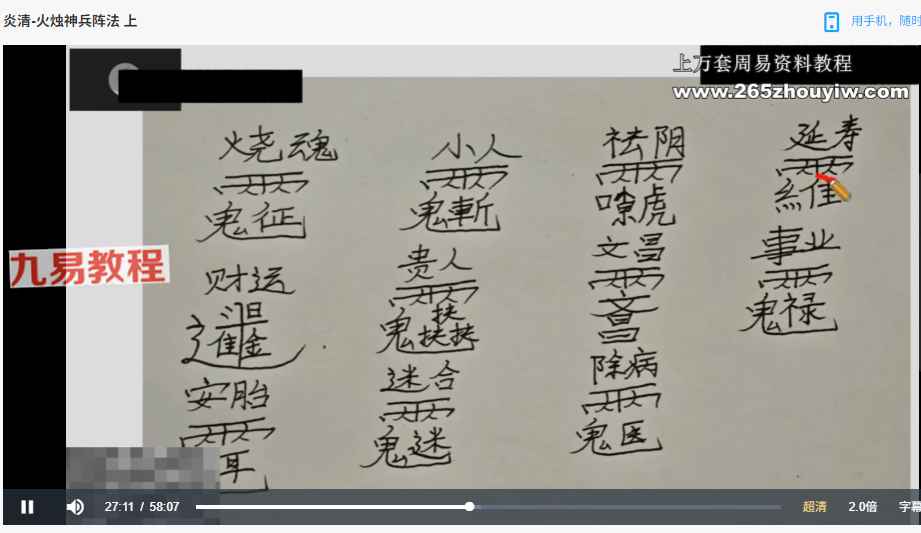 炎清-火烛神兵阵法 上
用手机，随时
上万套周易资料教程
www.265zhouyiw.com
九易教程
烧魂
鬼征
财运
安胎
耳
小人
鬼斬
贵人
鬼扶扶扶
迷合
鬼迷
祛阴
嗷虎
文昌
文昌
除病
鬼医
延寿
事业
鬼禄
27:11 / 58:07
超清
2.0倍
字幕